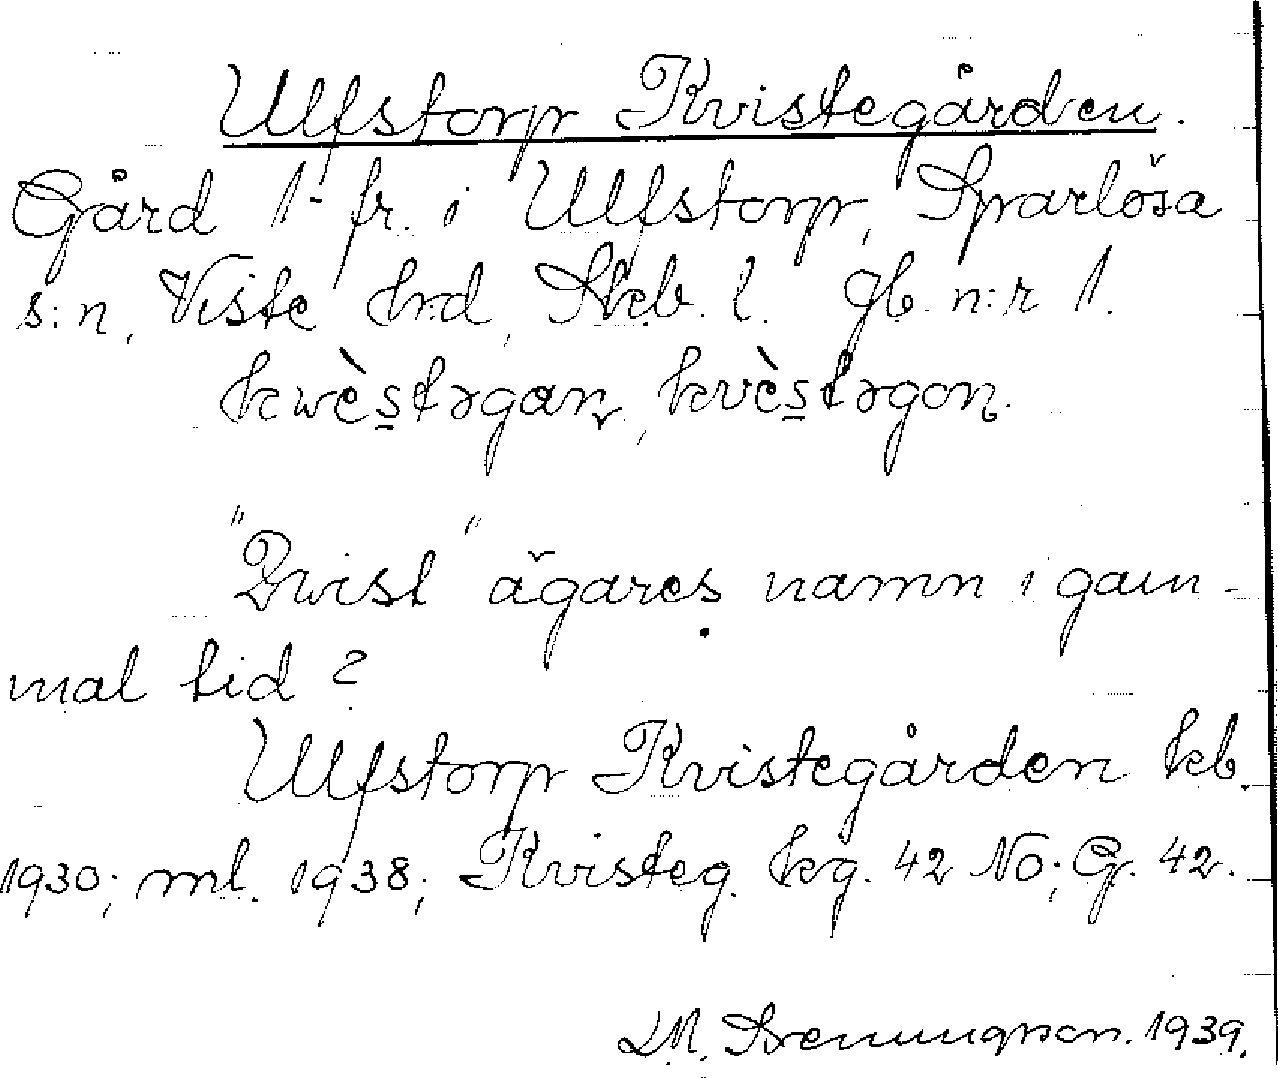 Ulfstorp Kvistegården.
Gård 1-fr. i Ulfstorp, Sparlösa
s:n, Viste hrd, Skb. l. Jb. n:r 1.
kwèstəgan, kvèstəgon.
"Qwist" ägares namn i gam-
mal tid?
Ulfstorp Kvistegården kb.
1930; ml. 1938; Kvisteg. kg. 42 No; G. 42.
1939.